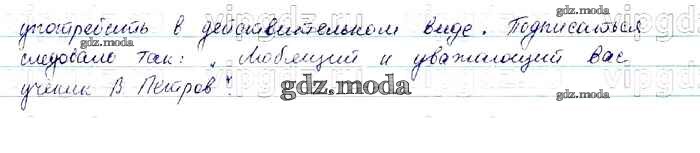 употребить в действительном виде. Подписаться
следовало так: „Любящий и уважающий вас
ученик В Петров".
gdz.moda
gdz.moda